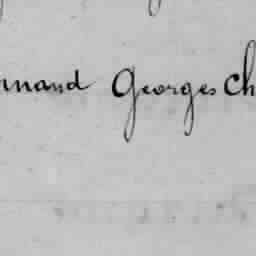 rnand Georges Ch